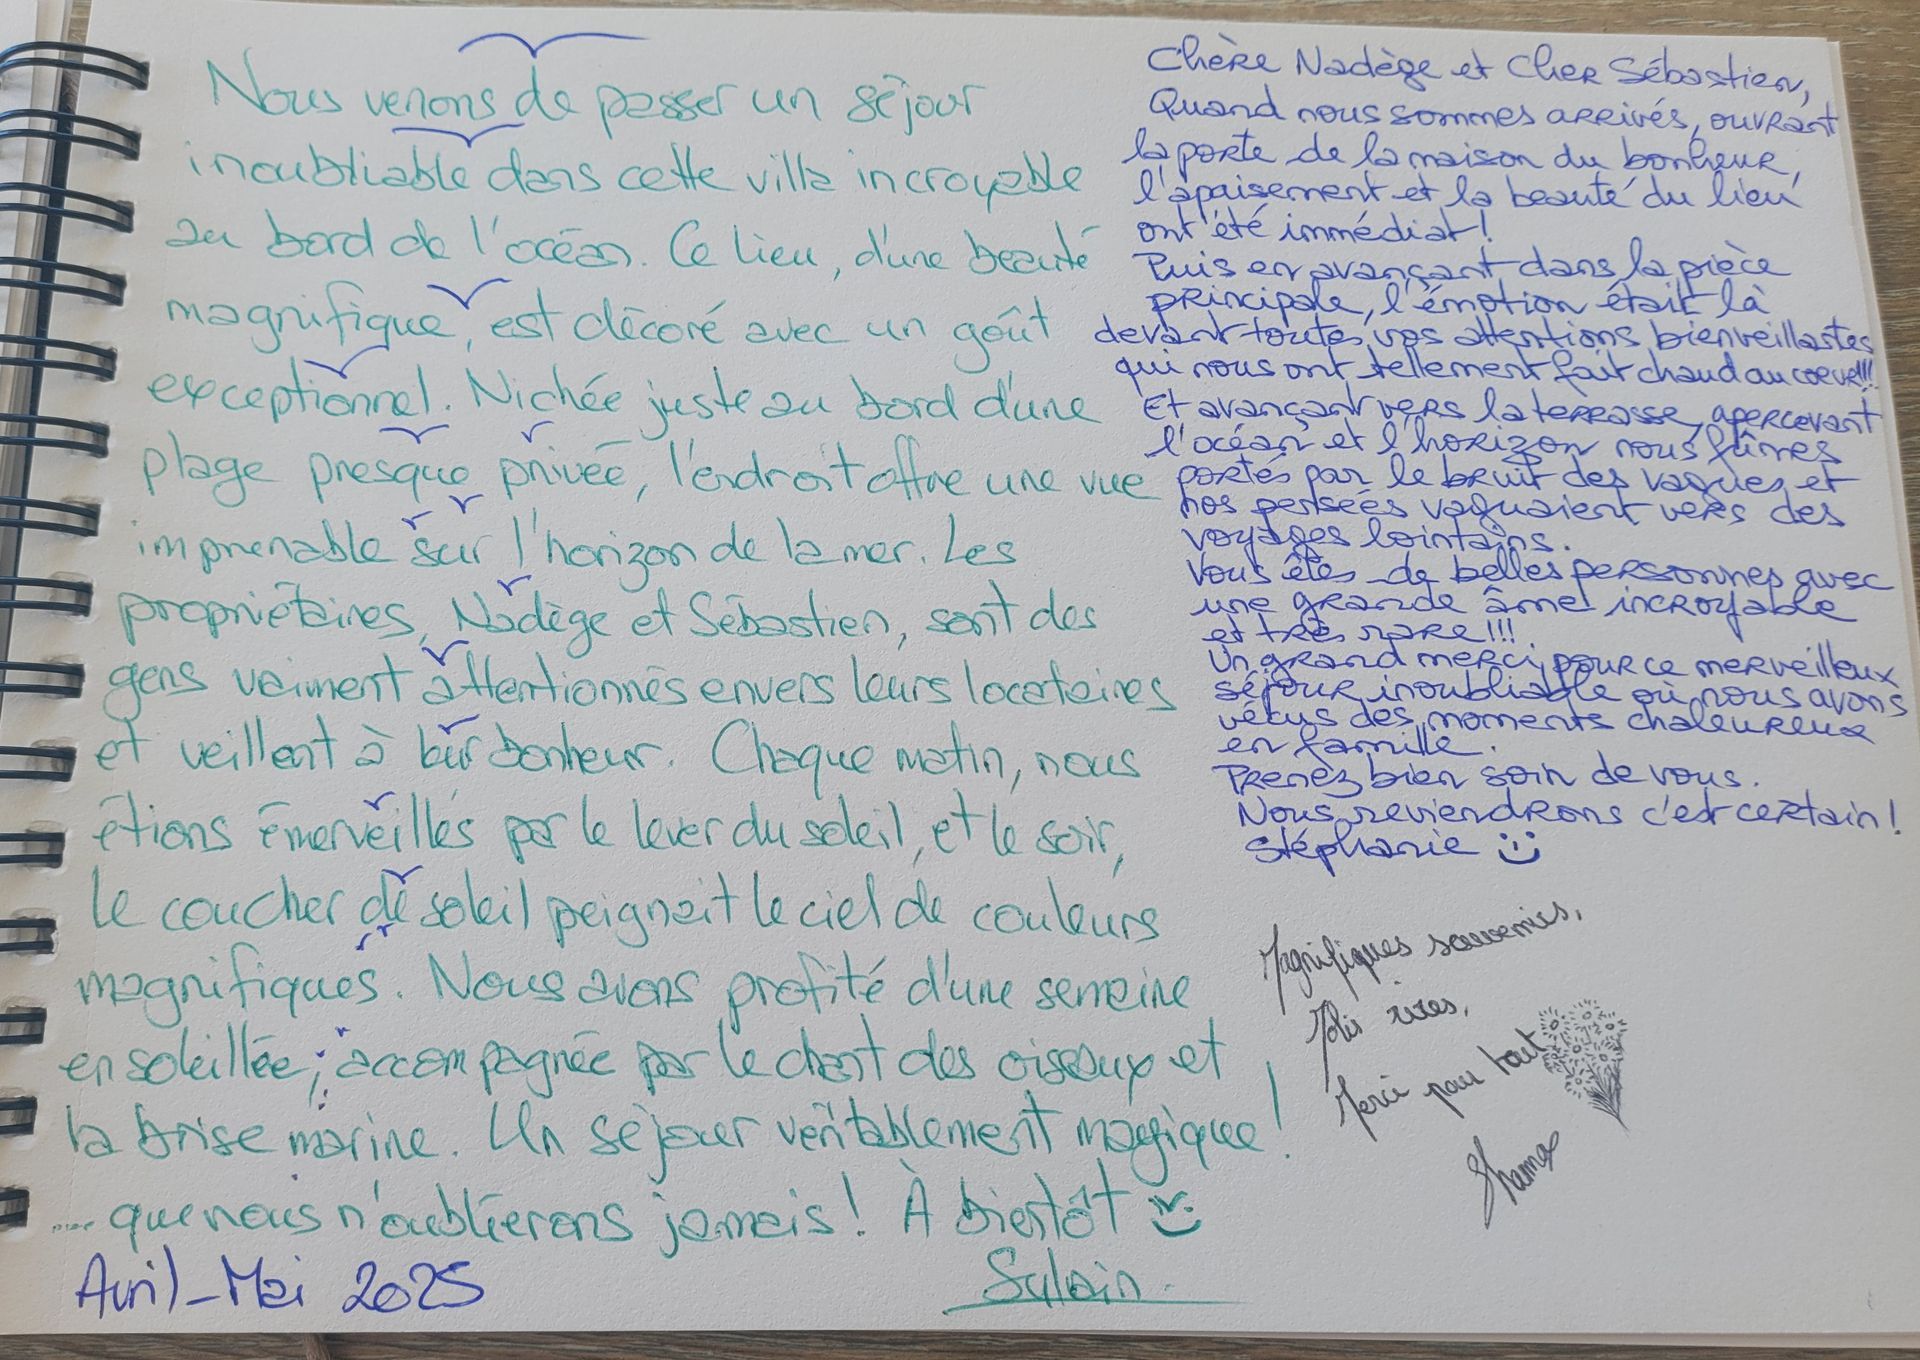 Nous venons de passer un séjour
inoubliable dans cette villa incroyable
au bord de l'océan. Ce lieu, d'une beauté
magnifique, est décoré avec un goût
exceptionnel. Nichée juste au bord d'une
plage presque privée, l'endroit offre une vue
imprenable sur l'horizon de la mer. Les
propriétaires, Nadège et Sébastien, sont des
gens vraiment attentionnés envers leurs locataires
et veillent à leur bonheur. Chaque matin, nous
étions émerveillés par le lever du soleil, et le soir,
le coucher de soleil peignait le ciel de couleurs
magnifiques. Nous avons profité d'une semaine
ensoleillée, accompagnée par le chant des oiseaux et
la brise marine. Un séjour véritablement magique !
.... que nous n'oublierons jamais ! À bientôt
Sylvain.
Avril - Mai 2025
Chère Nadège et Cher Sébastien,
Quand nous sommes arrivés, ouvrant
la porte de la maison du bonheur,
l'apaisement et la beauté du lieu
ont été immédiat !
Puis en avançant dans la pièce
principale, l'émotion était là
devant toutes vos attentions bienveillantes
qui nous ont tellement fait chaud au coeur !!!
Et avançant vers la terrasse, apercevant
l'océan et l'horizon nous fûmes
portés par le bruit des vagues et
nos pensées vaguaient vers des
voyages lointains.
Vous êtes de belles personnes avec
une grande âme incroyable
et très rare !!!
Un grand merci pour ce merveilleux
séjour inoubliable où nous avons
vécus des moments chaleureux
en famille.
Prenez bien soin de vous.
Nous reviendrons c'est certain !
Stéphanie
Magnifiques souvenirs,
Jolis rires,
Merci pour tout